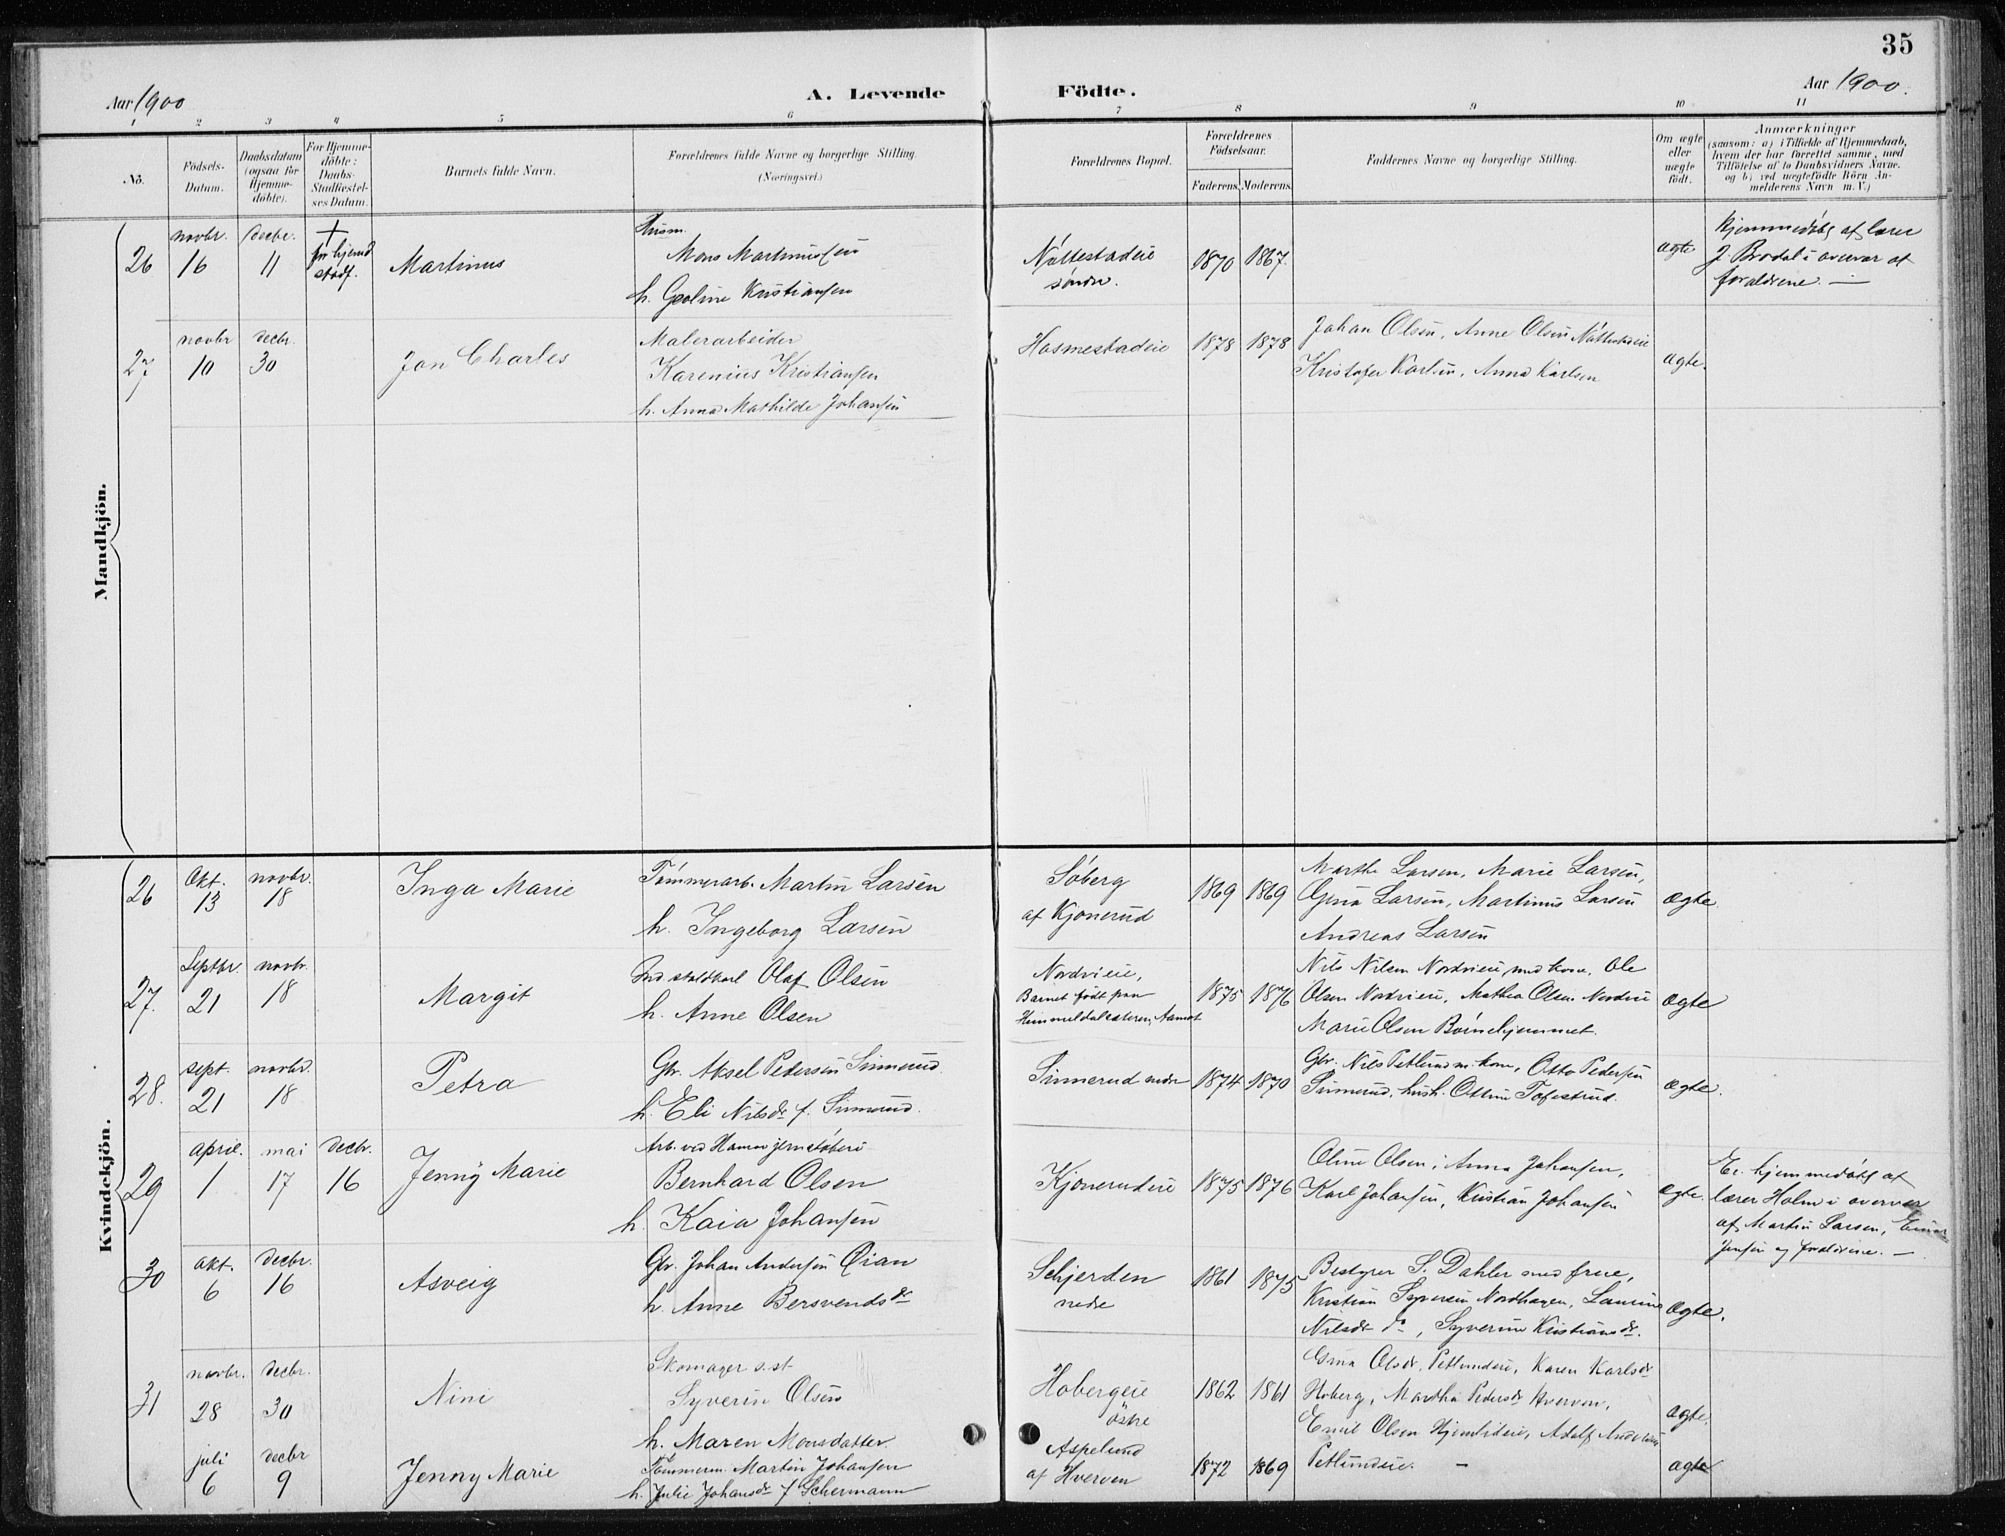 35
Aar 1900
A. Levende Födte.
Aar 1900.
1 2 3 4 5 6 7 8 9 10 11
No.
Födsels-Datum.
Daabsdatum (ogsaa for Hjemme-döbte).
For Hjemme-döbte: Daabs-Stadfæstel-ses Datum.
Barnets fulde Navn.
Forældrenes fulde Navne og borgerlige Stilling. (Næringsvei.)
Forældrenes Bopæl.
Forældrenes Födselsaar.
Faderens. Moderens.
Faddernes Navne og borgerlige Stilling.
Om ægte eller uægte födt.
Anmærkninger
(saasom: a) i Tilfælde af Hjemmedaab,
hvem der har forrettet samme, med
Tilföielse af to Daabsvidners Navne.
og b) ved uægtefödte Börn An-
melderens Navn m. V.)
Mandkjön.
26
novbr. 16
decbr. 11
+ før hjemd stadf.
Martinus
Husm.
Mons Martinussen
h. Goline Kristiansen
Nøttestadeie
søndre.
1870 1867.
ægte
hjemmedøbt af lærer
J. Brodal i overvær af
forældrene. —
27
novbr 10
decbr. 30
Jon Charles
Malerarbeider
Karenius Kristiansen
h. Anna Mathilde Johansen
Hosmestadeie
1878 1878
Johan Olsen, Anne Olsen Nøttestadeie
Kristofer Karlsen, Anna Karlsen
ægte.
Kvindekjön.
26
Okt. 13
novbr. 18
Inga Marie
Tømmerarb. Martin Larsen
h. Ingeborg Larsen
Søberg
af Kjonerud
1869 1869
Marthe Larsen, Marie Larsen,
Gina Larsen, Martinus Larsen
Andreas Larsen
ægte.
27.
Septbr. 21
novbr. 18
Margit
Olaf Olsen
h. Anne Olsen
Nordvieie,
Barnet født paa
Himmeldalsæteren, Aamot
1875 1876
Nils Nilsen Nordvieie med kone, Ole
Olsen Nordvieie, Mathea Olsen Nordvie
Marie Olsen Børnehjemmet.
ægte
28.
sept. 21
novbr. 18
Petra
Gbr. Aksel Pedersen Sinnerud
h. Eli Nilsdr f. Sinnerud.
Sinnerud nedre
1874 1870
Gbr. Nils Petlund m. kone, Otto Pedersen
Sinnerud, hush. Ottine Tofestrud.
ægte.
29
april. 1
mai 17
decbr. 16
Jenny Marie
Arb. ved Hamar jernstøberi
Bernhard Olsen
h. Kaia Johansen
Kjonerudeie
1875 1876
Oline Olsen, Anna Johansen,
Karl Johansen, Kristian Johansen
ægte.
Er hjemmedøbt af
lærer Holm i overvær
af Martin Larsen, Einar
Jensen og forældrene. —
30
okt. 6
decbr. 16
Asveig
Gbr. Johan Andersen Qvan
h. Anne Bersvendsdr
Schjerden
nedre
1861 1875
Bestyrer S. Dahler med frue,
Kristian Syversen Nordhagen, Laurine
Nilsdr do, Syverine Kristiansdr.
ægte.
31
novbr. 28
decbr. 30
Nini
Skomager s.st
Syverin Olsen
h. Maren Monsdatter
Hobergeie
östre
1862 1861
Gina Olsdr. Petlundeie, Karen Karlsdr
Hoberg, Marthe Pedersdr Hverven,
Emil Olsen Hjemlideie, Adolf Andersen
Petlundeie. —
ægte.
juli 6
decbr 9
Jenny Marie
Tømmerm. Martin Johansen
h. Julie Johansdr f Schermann
Aspelund
af Hverven
1872 1869
ægte